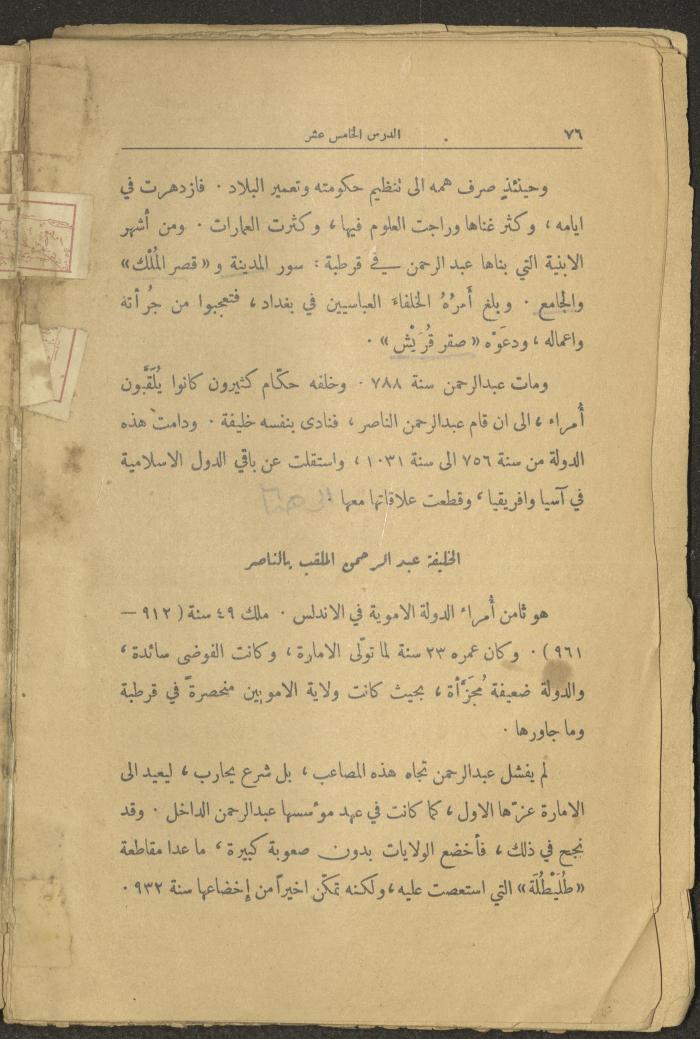 ٧٦ الدرس الخامس عشر
وحينئذٍ صرف همه الى تنظيم حكومته وتعمير البلاد . فازدهرت في
ايامه ، وكثر غناها وراجت العلوم فيها ، وكثرت العمارات . ومن أشهر
الابنية التي بناها عبد الرحمن في قرطبة : سور المدينة و « قصر المُلْك »
والجامع . وبلغ أَمرُهُ الخلفاءَ العباسيين في بغداد ، فتعجبوا من جُرأته
واعماله ، ودعَوْه « صقر قُرَيْش » .
ومات عبدالرحمن سنة ٧٨٨ . وخلفه حكّام كثيرون كانوا يُلَقَّبون
أُمراء ، الى ان قام عبدالرحمن الناصر ، فنادى بنفسه خليفة . ودامت هذه
الدولة من سنة ٧٥٦ الى سنة ١٠٣١ ، واستقلت عن باقي الدول الاسلامية
في آسيا وافريقيا ، وقطعت علاقاتها معها .
الخليفة عبد الرحمن الملقب بالناصر
هو ثامن أُمراء الدولة الاموية في الاندلس . ملك ٤٩ سنة ( ٩١٢ —
٩٦١ ) . وكان عمره ٢٣ سنة لما تولّى الامارة ، وكانت الفوضى سائدة ،
والدولة ضعيفة مُجَزَّأة ، بحيث كانت ولاية الامويين منحصرةً في قرطبة
وما جاورها .
لم يفشل عبدالرحمن تجاه هذه المصاعب ، بل شرع يحارب ، ليعيد الى
الامارة عزّها الاول ، كما كانت في عهد مؤسسها عبدالرحمن الداخل . وقد
نجح في ذلك ، فأخضع الولايات بدون صعوبة كبيرة ، ما عدا مقاطعة
« طُلَيْطُلَة » التي استعصت عليه ، ولكنه تمكّن اخيراً من إخضاعها سنة ٩٣٢ .